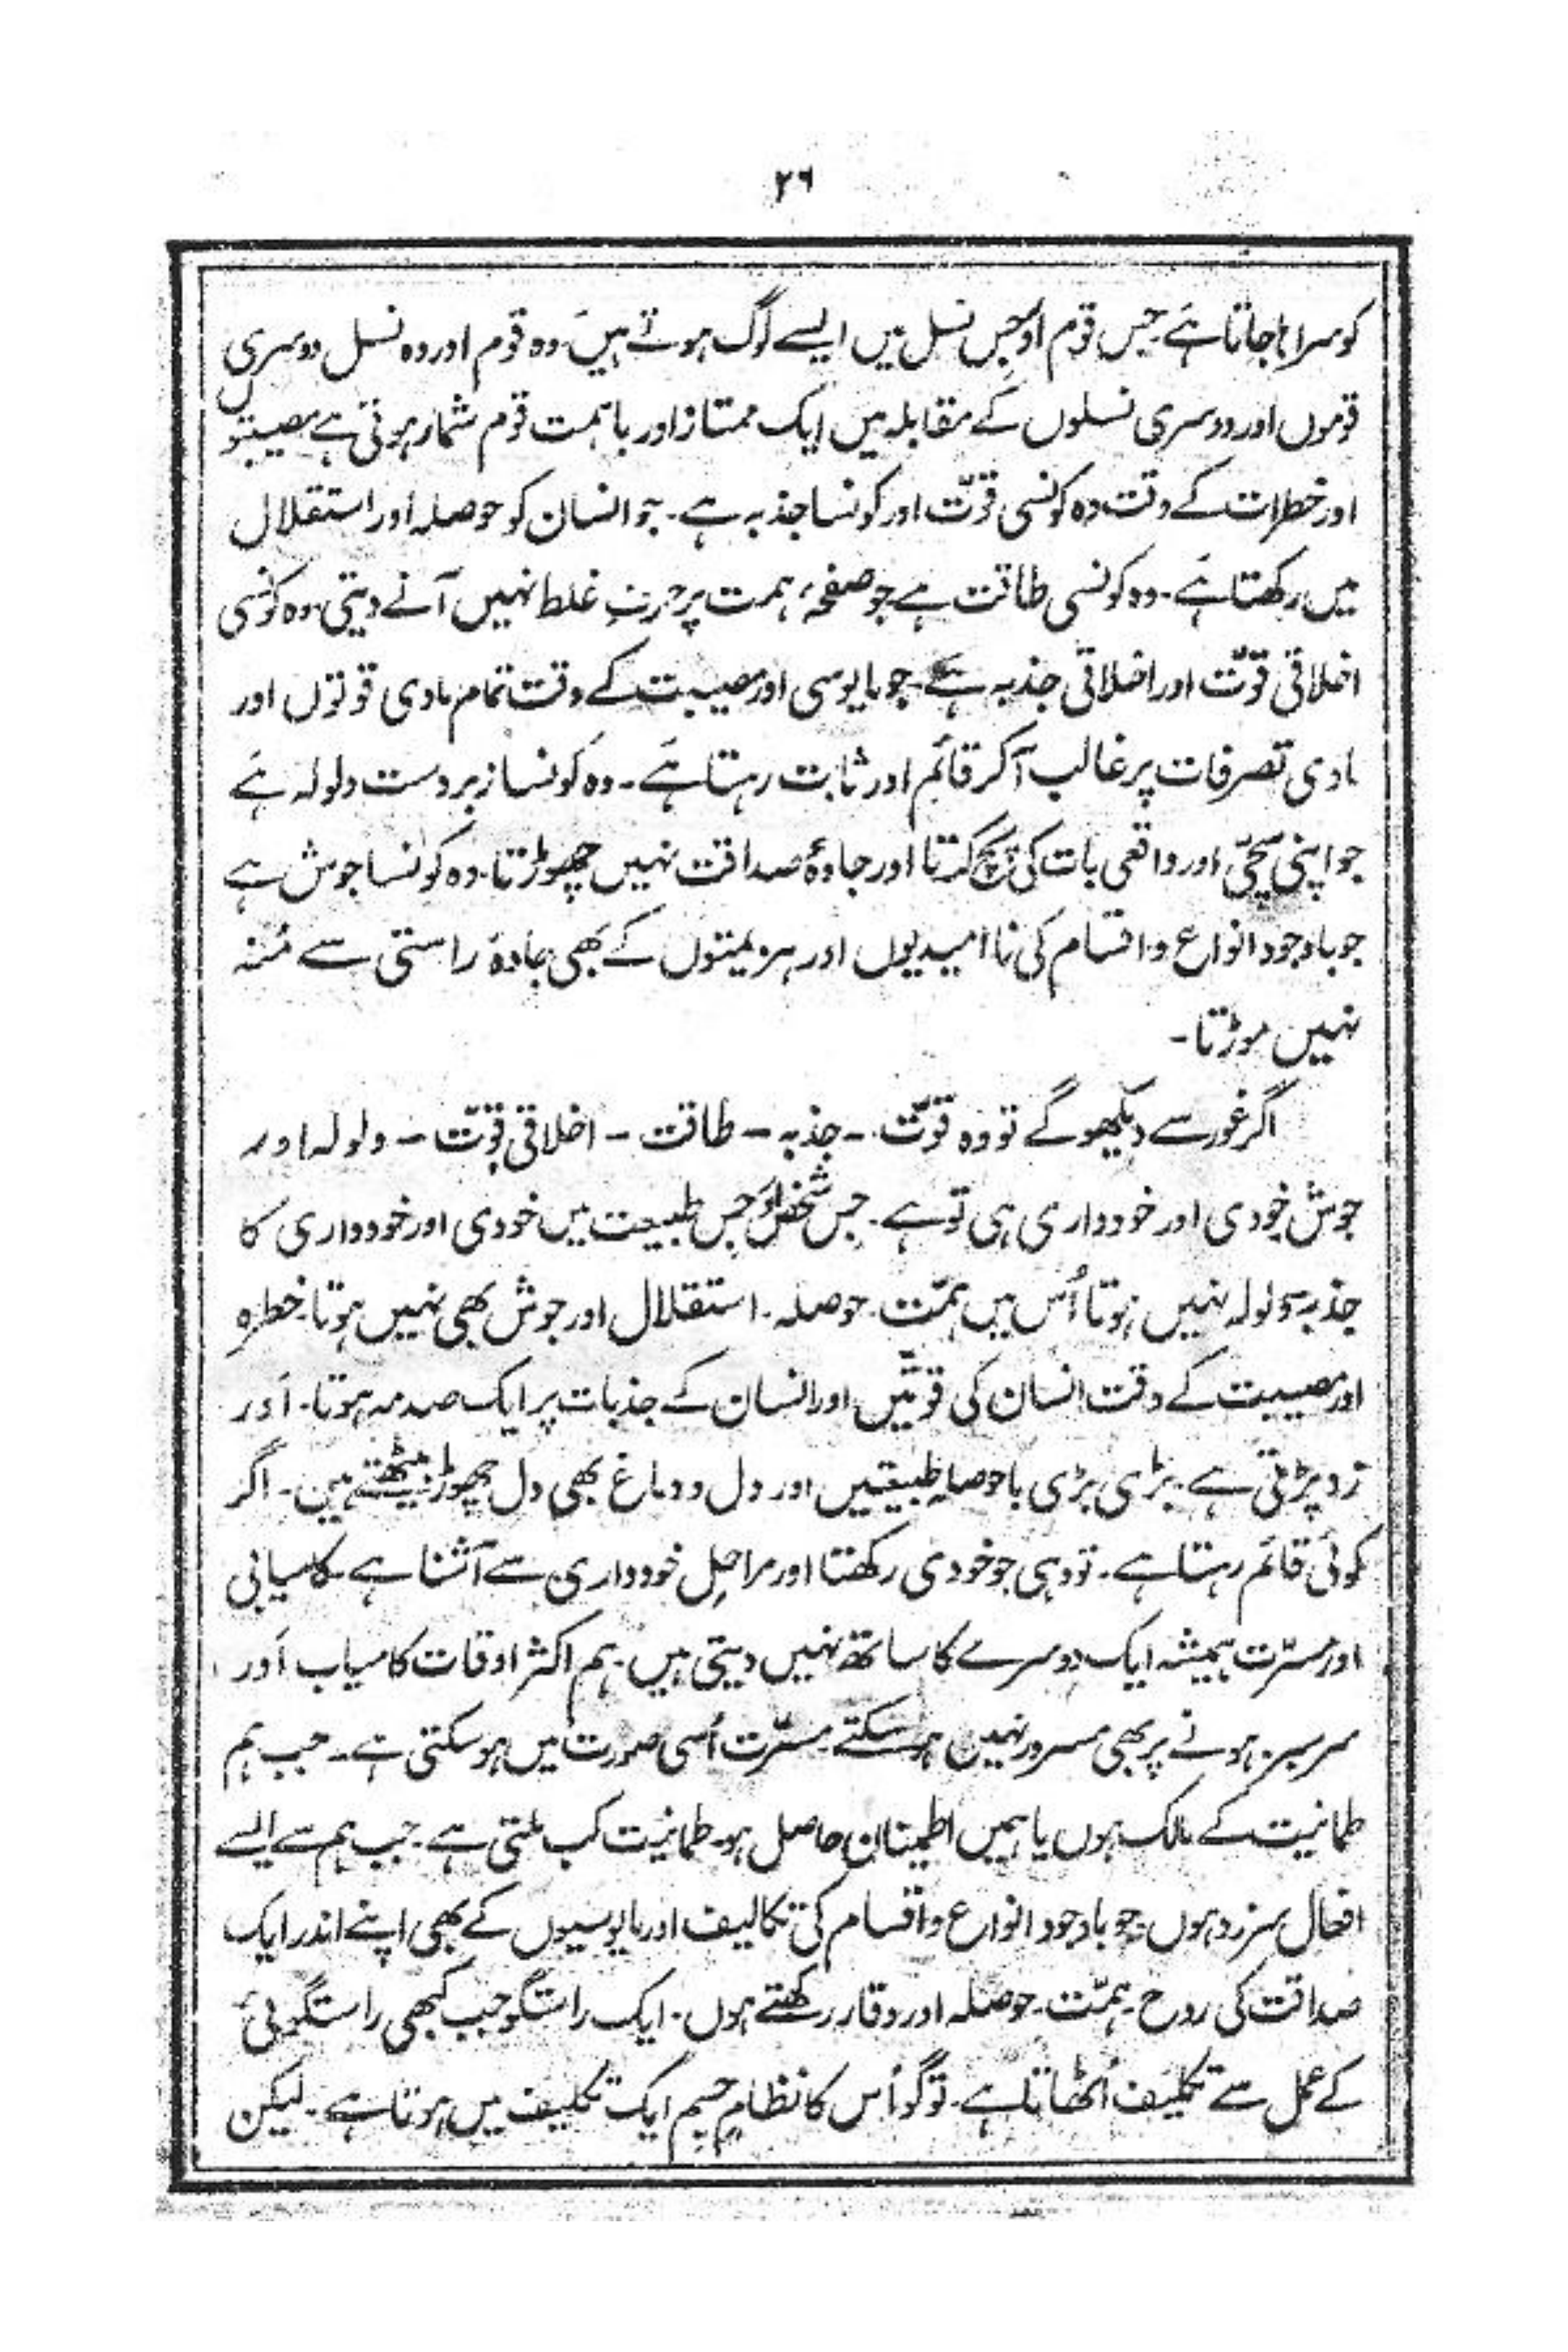 ۲۶
کو سراہا جاتا ہے جس قوم اور جس نسل میں ایسے لوگ ہوتے ہیں۔ وہ قوم اور وہ نسل دوسری
قوموں اور دوسری نسلوں کے مقابلہ میں ایک ممتاز اور باہمت قوم شمار ہوتی ہے مصیبتوں
اور خطرات کے وقت وہ کونسی قوّت اور کونسا جذبہ ہے۔ جو انسان کو حوصلہ اور استقلال
میں رکھتا ہے۔ وہ کونسی طاقت ہے جو صفحۂ ہمت پر حرفِ غلط نہیں آنے دیتی وہ کونسی
اخلاقی قوّت اور اخلاقی جذبہ ہے۔ جو مایوسی اور مصیبت کے وقت تمام مادی قوتوں اور
مادی تصرفات پر غالب آکر قائم اور ثابت رہتا ہے۔ وہ کونسا زبردست ولولہ ہے
جو اپنی سچّی اور واقعی بات کی پچ کرتا اور جادۂ صداقت نہیں چھوڑتا۔ وہ کونسا جوش ہے
جو باوجود انواع و اقسام کی ناامیدیوں اور ہزیمتوں کے بھی جادۂ راستی سے مُنہ
نہیں موڑتا۔
اگر غور سے دیکھو گے تو وہ قوّت ۔ جذبہ ۔ طاقت ۔ اخلاقی قوّت ۔ ولولہ اور
جوش خودی اور خودداری ہی تو ہے۔ جس شخص اور جس طبیعت میں خودی اور خودداری کا
جذبہ و ولولہ نہیں ہوتا اُس میں ہمّت۔ حوصلہ۔ استقلال اور جوش بھی نہیں ہوتا۔ خطرہ
اور مصیبت کے وقت انسان کی قوتّیں اور انسان کے جذبات پر ایک صدمہ ہوتا۔ اَور
زد پڑتی ہے۔ بڑی بڑی باحوصلہ طبیعتیں اور دل و دماغ بھی دل چھوڑ بیٹھتے ہیں۔ اگر
کوئی قائم رہتا ہے۔ تو وہی جو خودی رکھتا اور مراحلِ خودداری سے آشنا ہے۔ کامیابی
اور مسرّت ہمیشہ ایک دوسرے کا ساتھ نہیں دیتی ہیں۔ ہم اکثر اوقات کامیاب اَور
سرسبز ہونے پر بھی مسرور نہیں ہو سکتے۔ مسرّت اُسی صورت میں ہو سکتی ہے۔ جب ہم
طمانیت کے مالک ہوں یا ہمیں اطمینان حاصل ہو۔ طمانیت کب ملتی ہے۔ جب ہم سے ایسے
افعال سرزد ہوں۔ جو باوجود انواع و اقسام کی تکالیف اور مایوسیوں کے بھی اپنے اندر ایک
صداقت کی روح۔ ہمّت۔ حوصلہ اور وقار رکھتے ہوں۔ ایک راستگو جب کبھی راستگوئی
کے عمل سے تکلیف اُٹھاتا ہے۔ تو گو اُس کا نظامِ جسم ایک تکلیف میں ہوتا ہے۔ لیکن